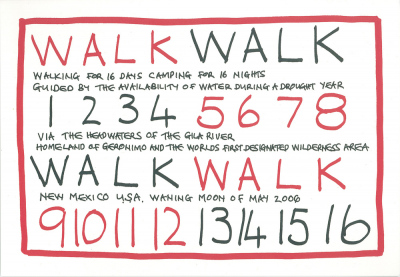 WALK WALK
WALKING FOR 16 DAYS CAMPING FOR 16 NIGHTS
GUIDED BY THE AVAILABILITY OF WATER DURING A DROUGHT YEAR
1 2 3 4 5 6 7 8
VIA THE HEADWATERS OF THE GILA RIVER
HOMELAND OF GERONIMO AND THE WORLDS FIRST DESIGNATED WILDERNESS AREA
WALK WALK
NEW MEXICO USA, WANING MOON OF MAY 2006
9 10 11 12 13 14 15 16